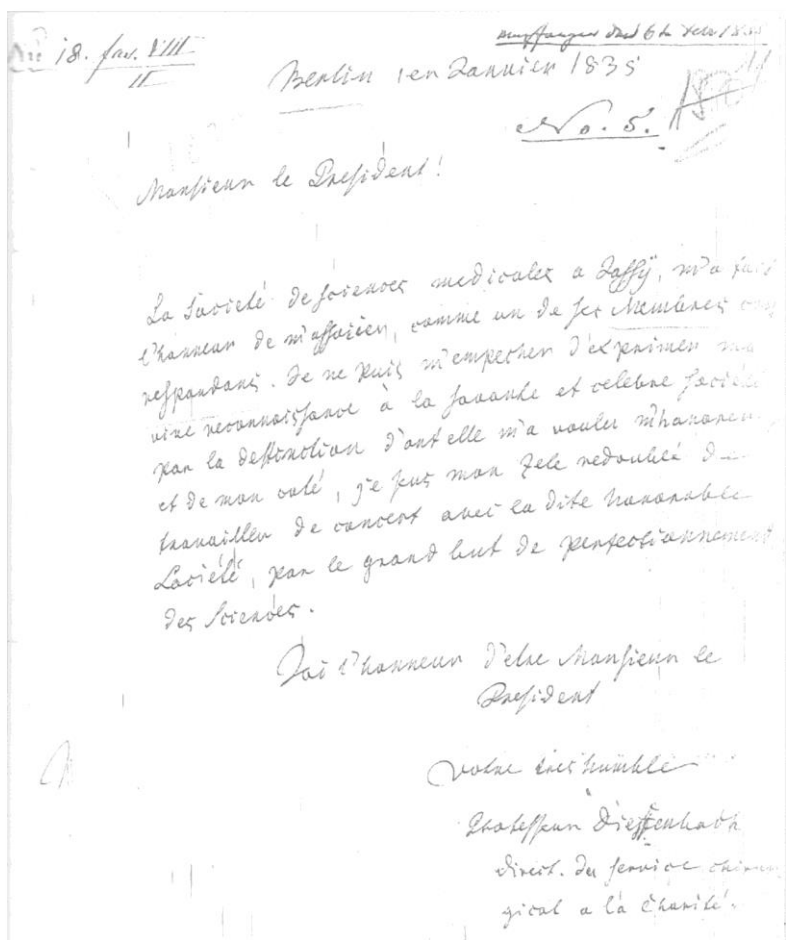 18. fasc. VIII
II
Berlin 1en Janvier 1835
No. 5.
Monsieur le President!
La Societé de sciences medicales a Jassÿ, m'a fait
l'honneur de m'associer, comme un de ses Membres cor
respondans. Je ne puis m'empecher d'exprimer ma
vive reconnaissance à la savante et celebre societé
par la destinction d'ont elle m'a voulu m'honorer,
et de mon coté, je sens mon zele redoublé de
travailler de concert avec la dite honorable
Societé, par le grand but de perfectionnement
des sciences.
J'ai l'honneur d'etre Monsieur le
President
votre tres humble
Professeur Dieffenbach
direct. du service chirur
gical a la Charité.